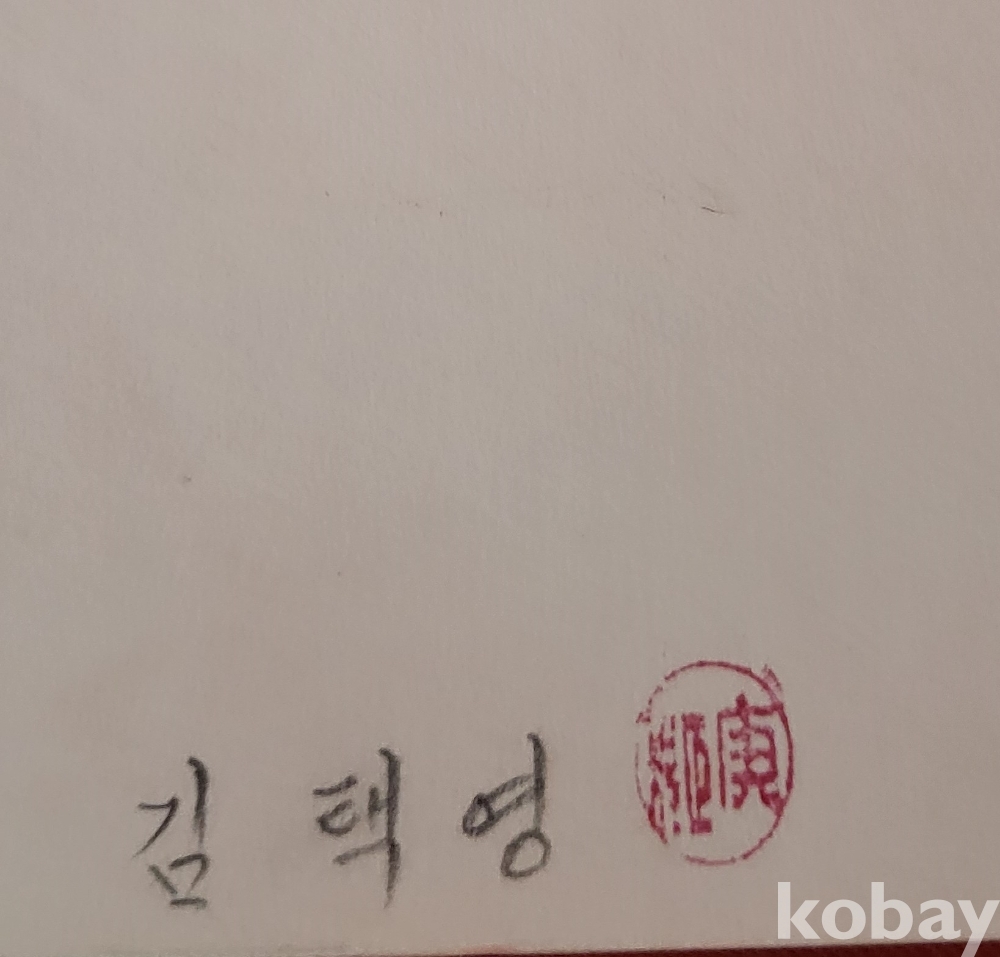 김 택 영
kobay